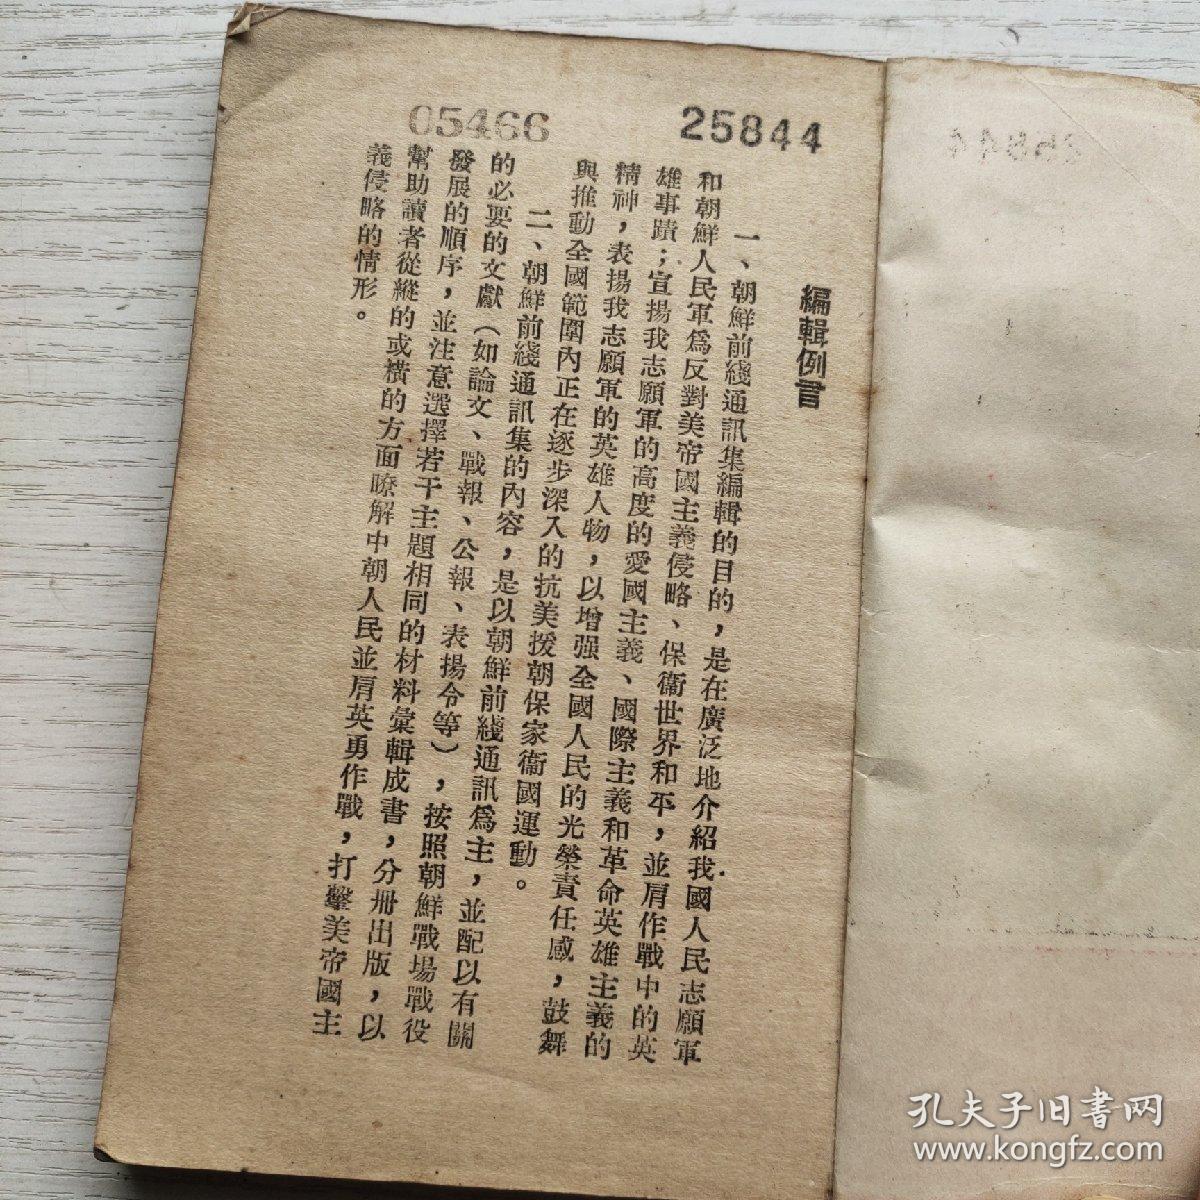 05466
25844
編輯例言
一、朝鮮前綫通訊集編輯的目的，是在廣泛地介紹我國人民志願軍
和朝鮮人民軍爲反對美帝國主義侵略、保衞世界和平，並肩作戰中的英
雄事蹟；宣揚我志願軍的高度的愛國主義、國際主義和革命英雄主義的
精神，表揚我志願軍的英雄人物，以增强全國人民的光榮責任感，鼓舞
與推動全國範圍內正在逐步深入的抗美援朝保家衞國運動。
二、朝鮮前綫通訊集的內容，是以朝鮮前綫通訊爲主，並配以有關
的必要的文獻（如論文、戰報、公報、表揚令等），按照朝鮮戰場戰役
發展的順序，並注意選擇若干主題相同的材料彙輯成書，分册出版，以
幫助讀者從縱的或橫的方面瞭解中朝人民並肩英勇作戰，打擊美帝國主
義侵略的情形。
25844
孔夫子旧书网
www.kongfz.com